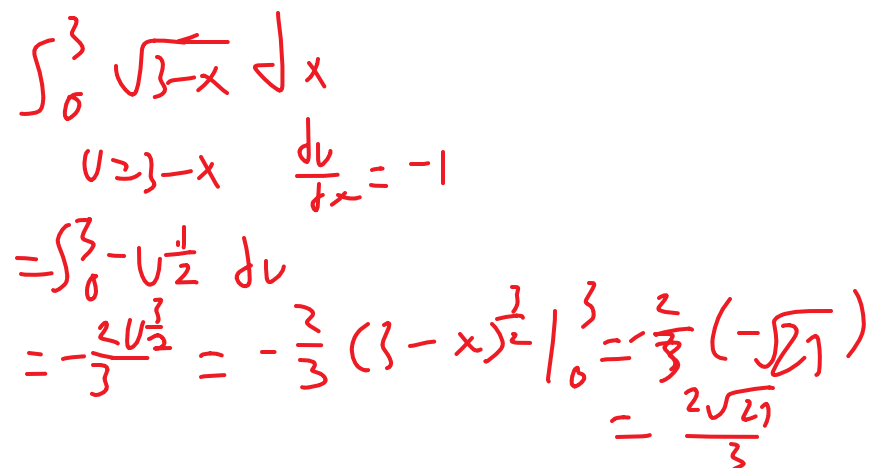 ∫₀³ √(3-x) dx
u = 3-x   du/dx = -1
= ∫₀³ -u^(1/2) du
= -2u^(3/2)/3 = -2/3 (3-x)^(3/2) |₀³ = -2/3 (-√27)
= 2√27/3